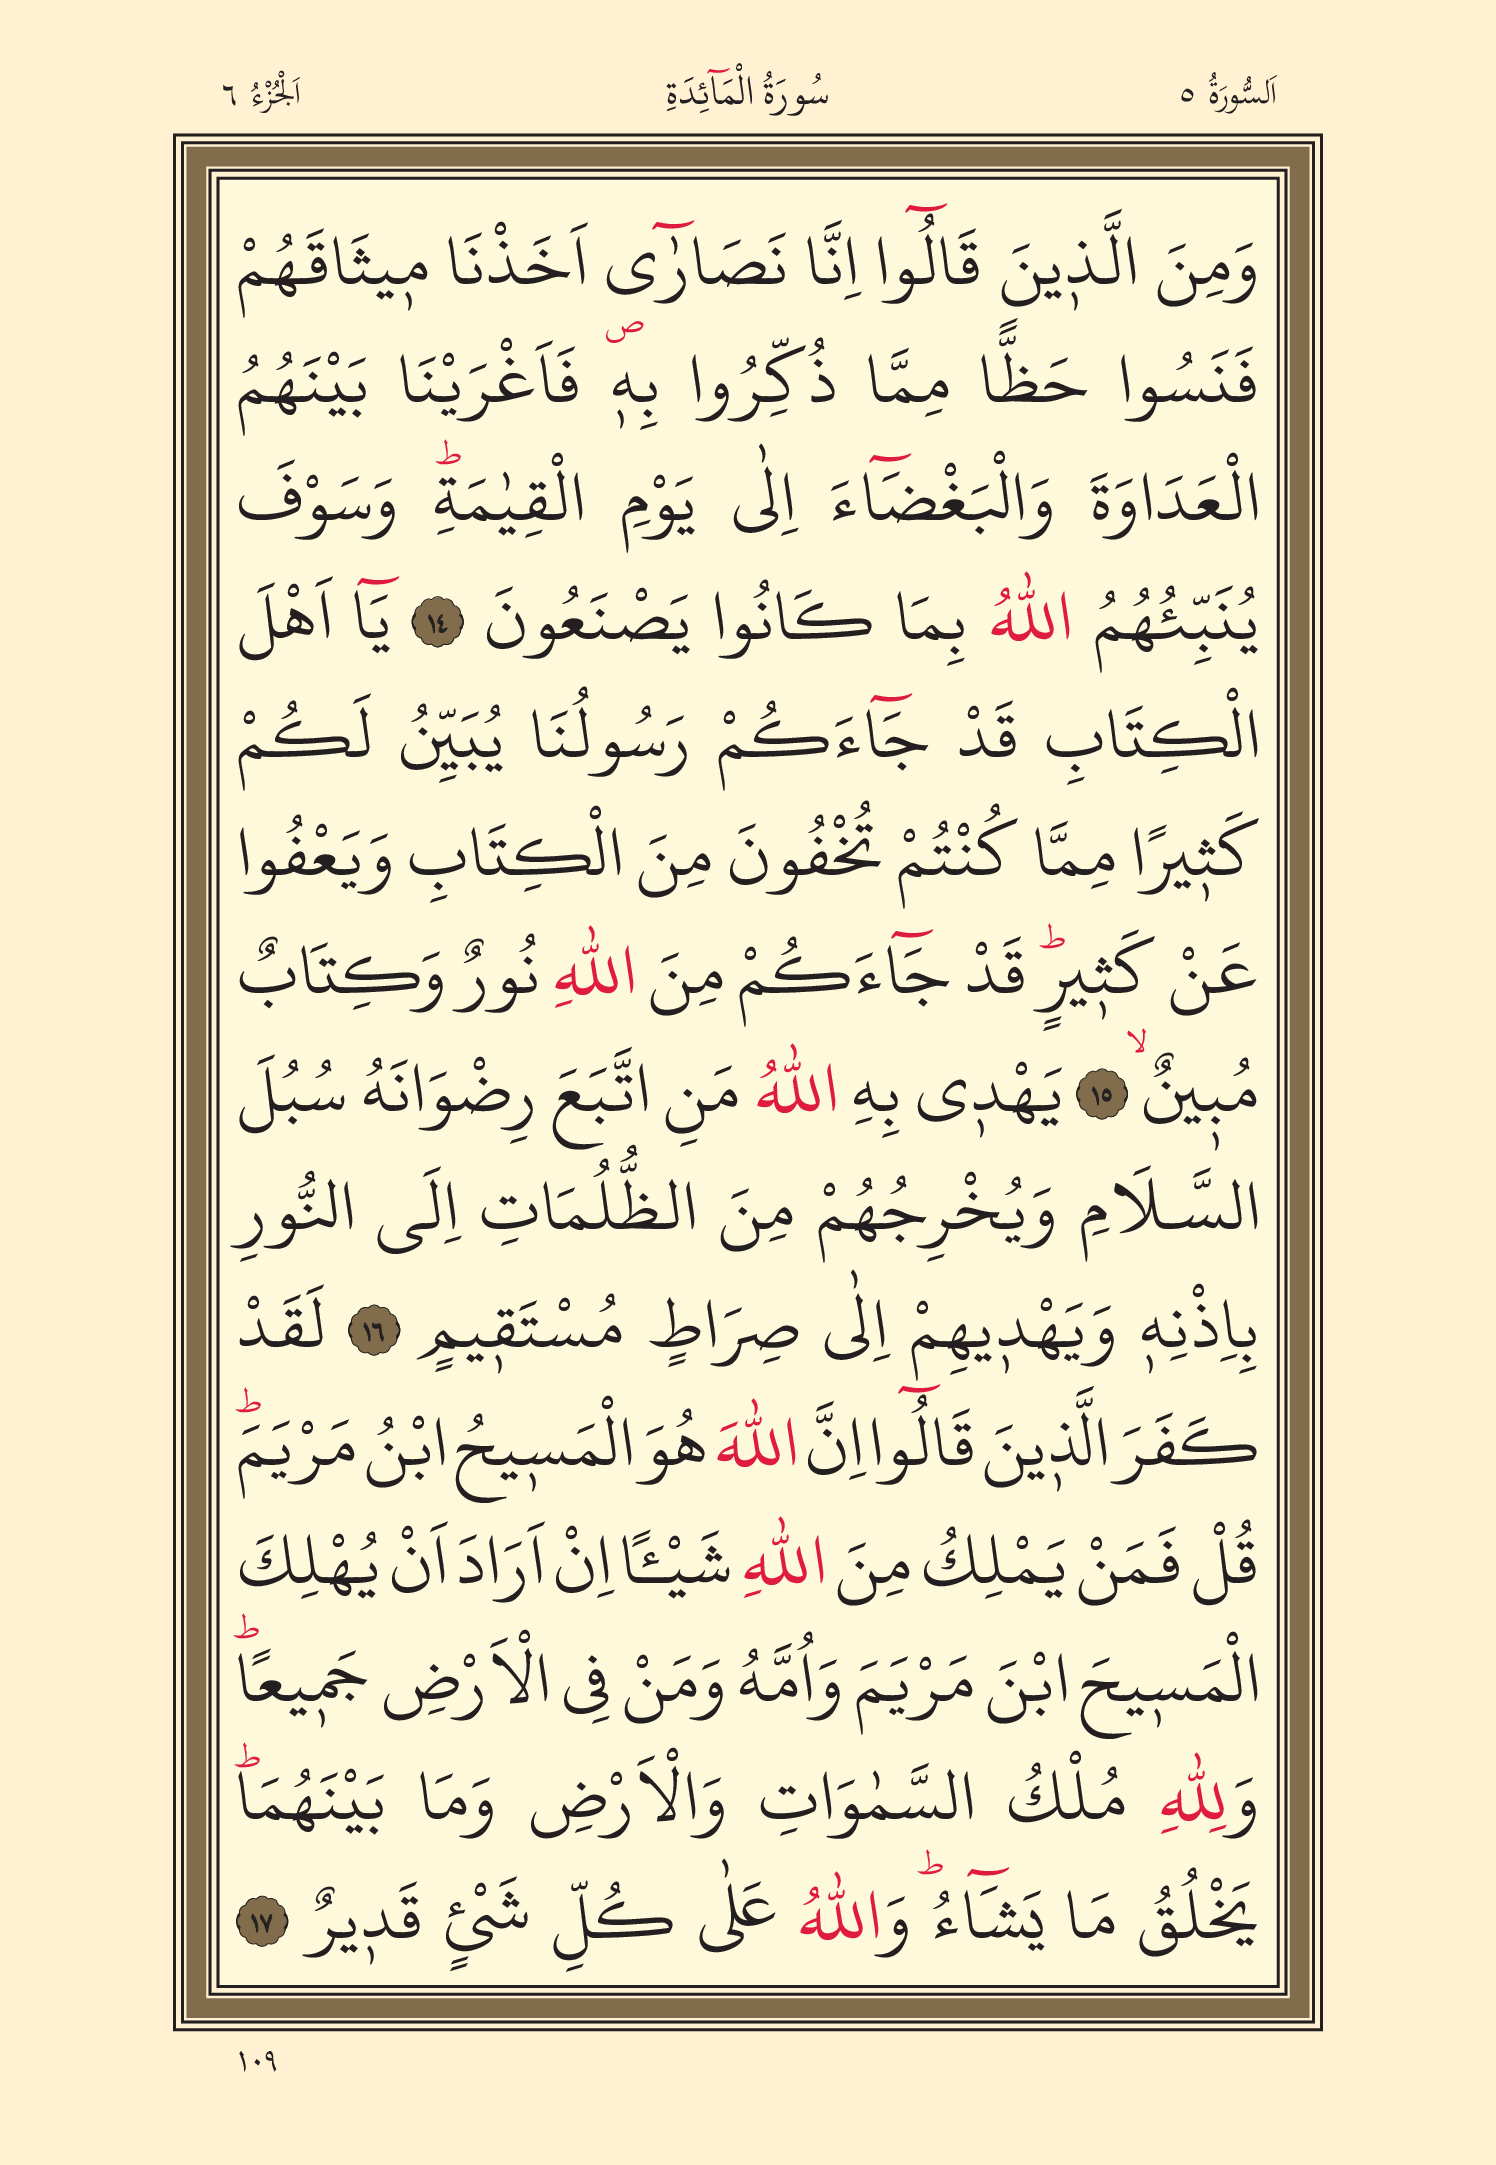 اَلسُّورَةُ ٥ سُورَةُ الْمَٓائِدَةِ اَلْجُزْءُ ٦
وَمِنَ الَّذ۪ينَ قَالُٓوا اِنَّا نَصَارٰٓى اَخَذْنَا م۪يثَاقَهُمْ
فَنَسُوا حَظًّا مِمَّا ذُكِّرُوا بِه۪ۖ فَاَغْرَيْنَا بَيْنَهُمُ
الْعَدَاوَةَ وَالْبَغْضَٓاءَ اِلٰى يَوْمِ الْقِيٰمَةِۜ وَسَوْفَ
يُنَبِّئُهُمُ اللّٰهُ بِمَا كَانُوا يَصْنَعُونَ ١٤ يَٓا اَهْلَ
الْكِتَابِ قَدْ جَٓاءَكُمْ رَسُولُنَا يُبَيِّنُ لَكُمْ
كَث۪يرًا مِمَّا كُنْتُمْ تُخْفُونَ مِنَ الْكِتَابِ وَيَعْفُوا
عَنْ كَث۪يرٍۜ قَدْ جَٓاءَكُمْ مِنَ اللّٰهِ نُورٌ وَكِتَابٌ
مُب۪ينٌۙ ١٥ يَهْد۪ى بِهِ اللّٰهُ مَنِ اتَّبَعَ رِضْوَانَهُ سُبُلَ
السَّلَامِ وَيُخْرِجُهُمْ مِنَ الظُّلُمَاتِ اِلَى النُّورِ
بِاِذْنِه۪ وَيَهْد۪يهِمْ اِلٰى صِرَاطٍ مُسْتَق۪يمٍ ١٦ لَقَدْ
كَفَرَ الَّذ۪ينَ قَالُٓوا اِنَّ اللّٰهَ هُوَ الْمَس۪يحُ ابْنُ مَرْيَمَۜ
قُلْ فَمَنْ يَمْلِكُ مِنَ اللّٰهِ شَيْـًٔا اِنْ اَرَادَ اَنْ يُهْلِكَ
الْمَس۪يحَ ابْنَ مَرْيَمَ وَاُمَّهُ وَمَنْ فِى الْاَرْضِ جَم۪يعًاۜ
وَلِلّٰهِ مُلْكُ السَّمٰوَاتِ وَالْاَرْضِ وَمَا بَيْنَهُمَاۜ
يَخْلُقُ مَا يَشَٓاءُۜ وَاللّٰهُ عَلٰى كُلِّ شَىْءٍ قَد۪يرٌ ١٧
١٠٩